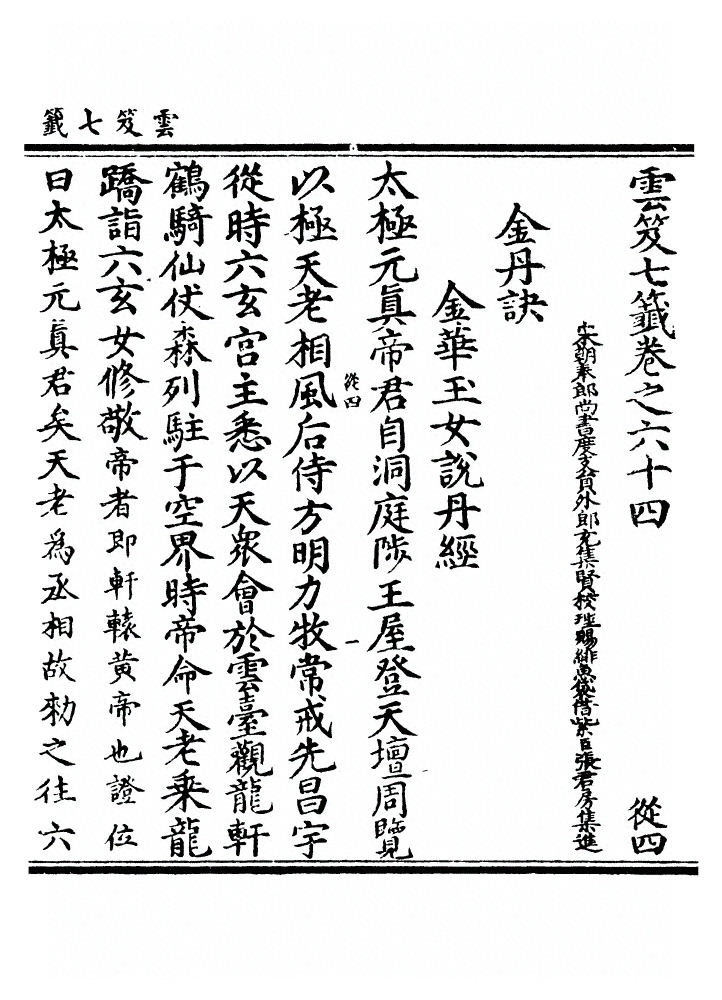 雲笈七籤
雲笈七籤卷之六十四 從四
宋朝奉郎尚書度支員外郎充集賢校理賜緋魚袋借紫臣張君房集進
金丹訣
金華玉女說丹經
太極元眞帝君自洞庭陟王屋登天壇周覽
以極天老相風后侍方明力牧常戒先昌宇
從四 一
從時六玄宮主悉以天衆會於雲臺觀龍軒
鶴騎仙仗森列駐于空界時帝命天老乘龍
蹻詣六玄女修敬帝者即軒轅黄帝也證位
曰太極元眞君矣天老爲丞相故勑之往六